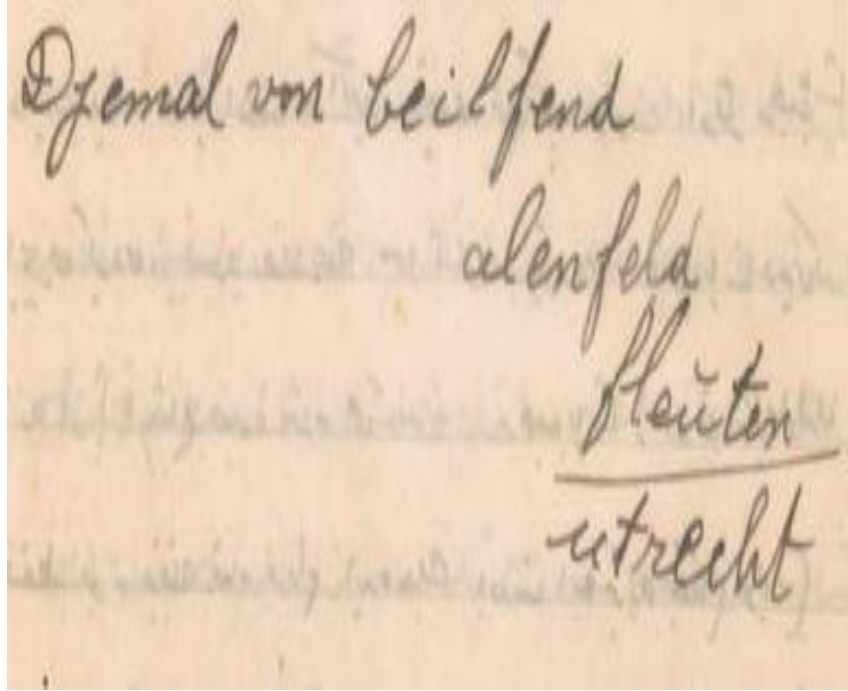 Djemal von beilfend
alenfeld
fleŭten
utrecht